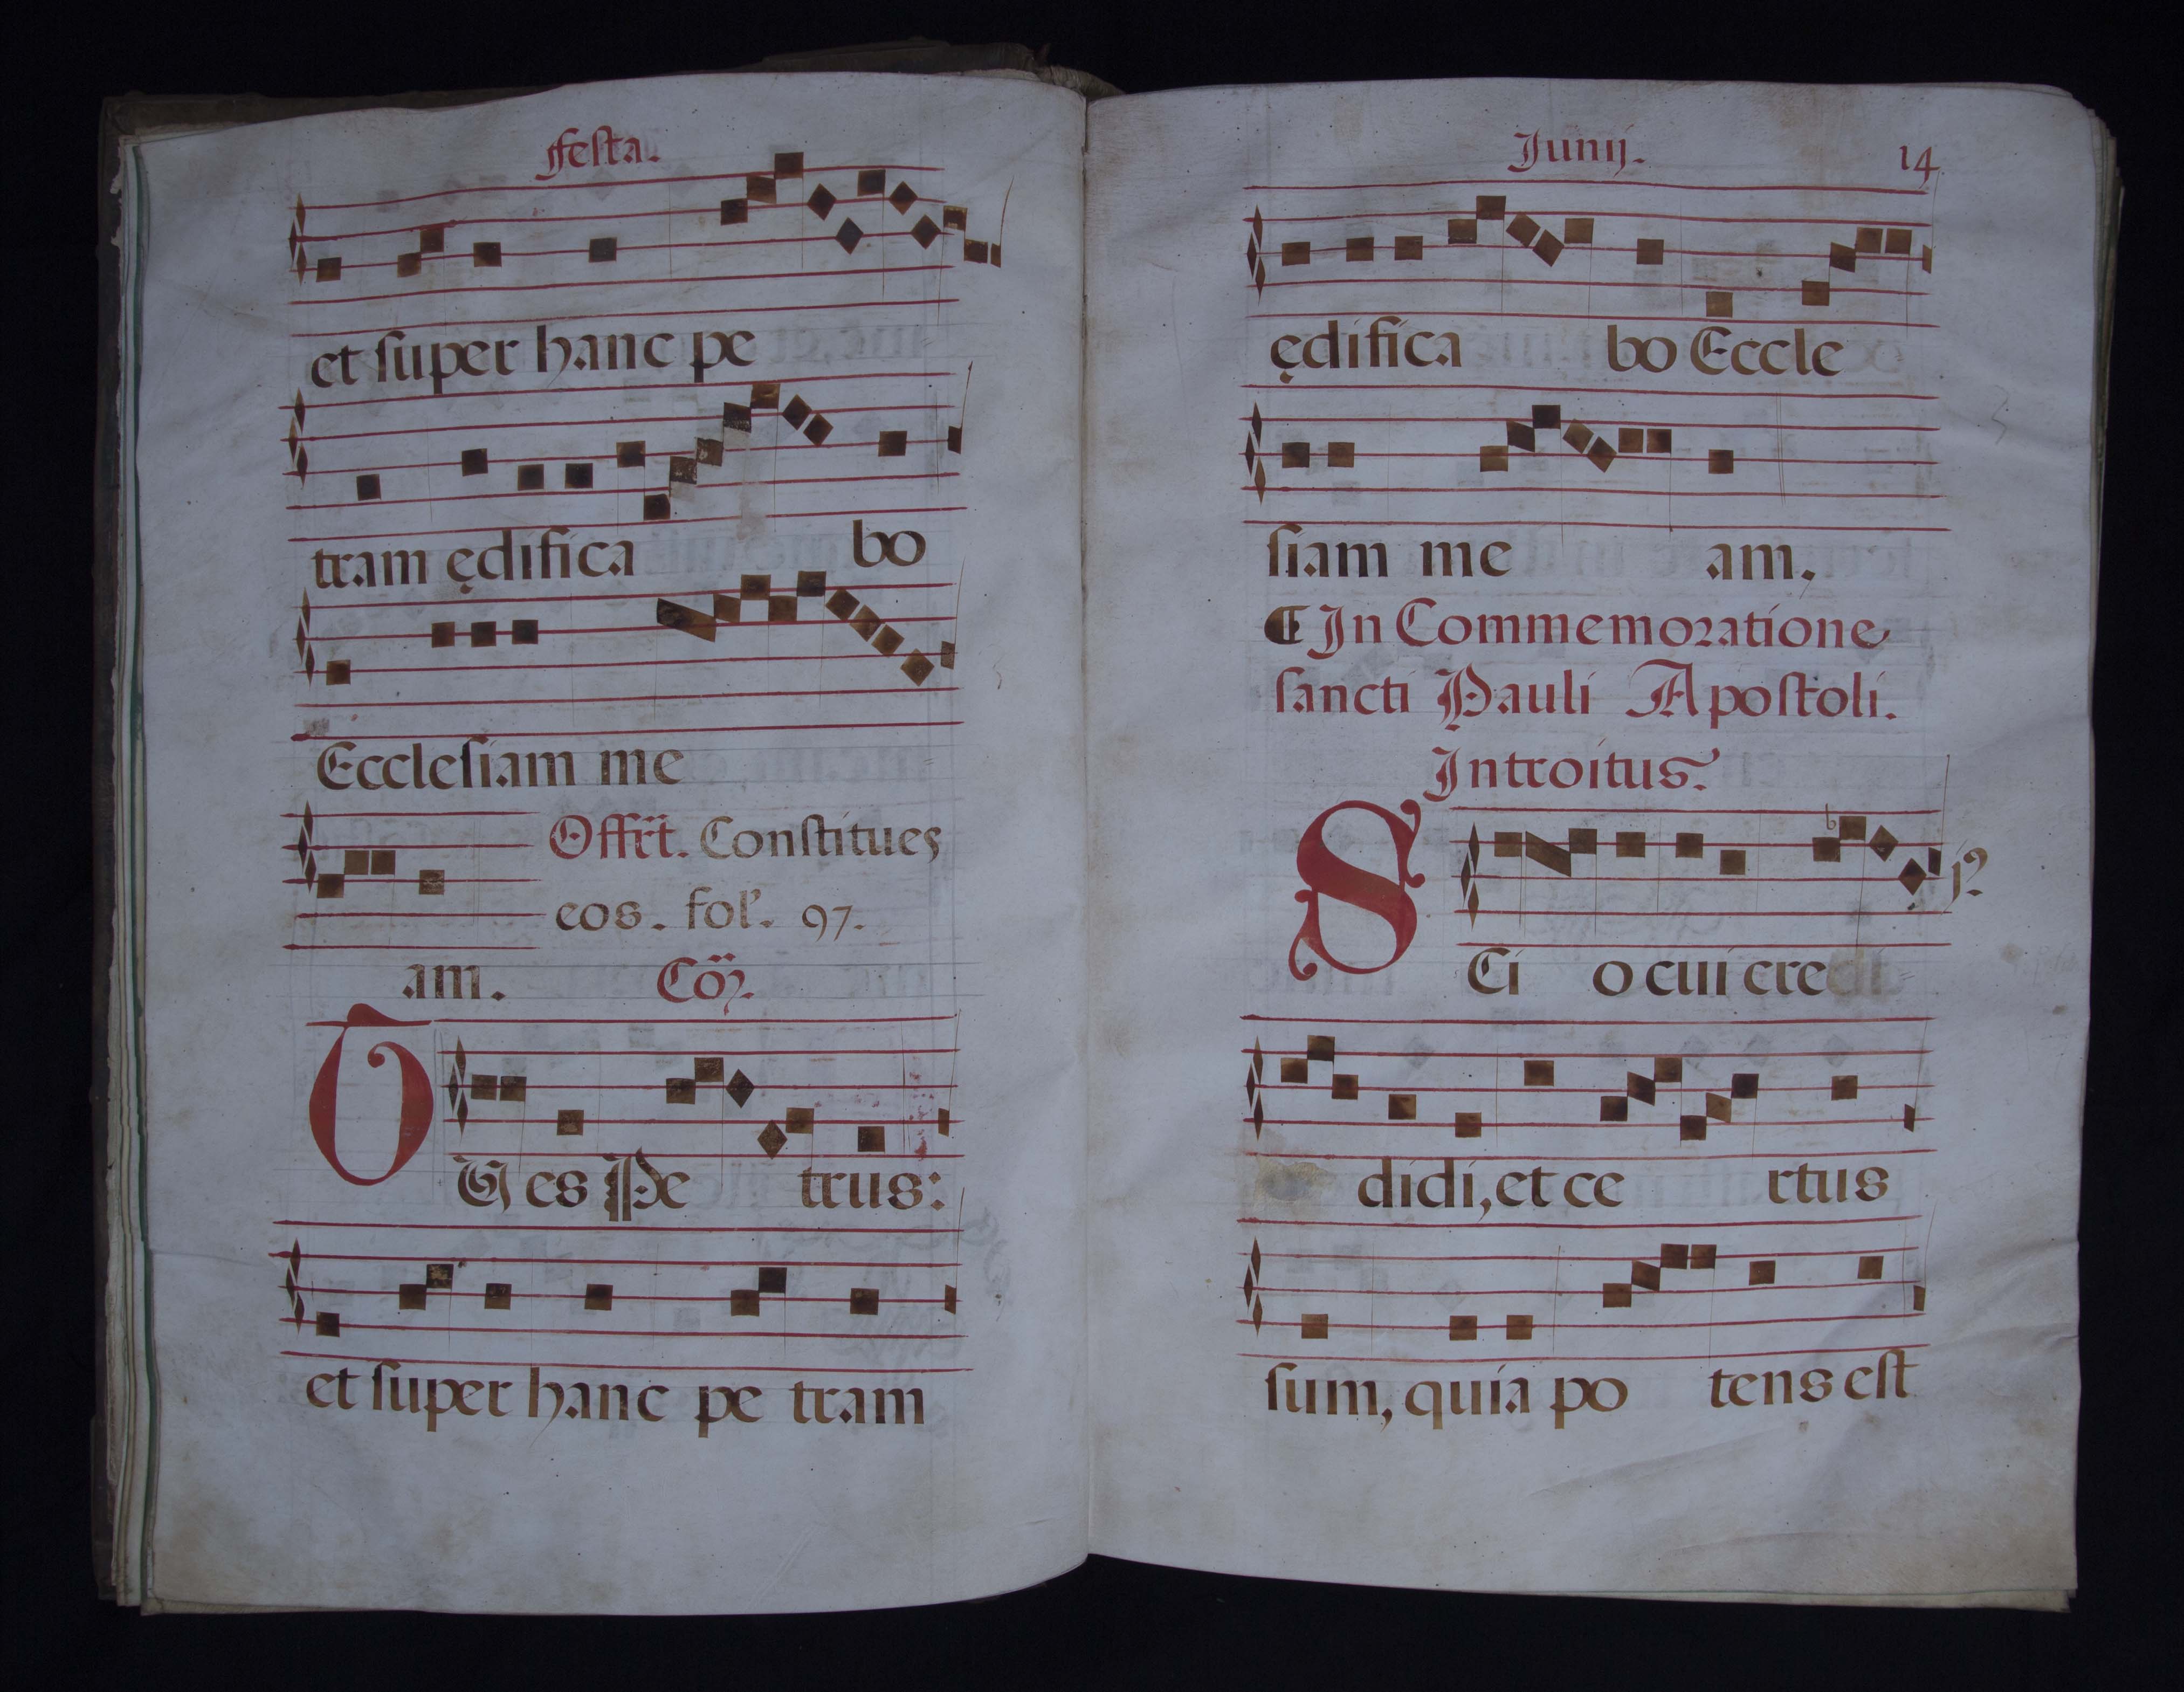 Festa.
et super hanc pe
tram ędifica bo
Ecclesiam me
Offrt. Constitues
eos. fol. 97.
am. Cõ.
TU es Pe trus:
et super hanc pe tram
Junij. 14
ędifica bo Eccle
siam me am.
In Commemoratione
sancti Pauli Apostoli.
Introitus.
b
SCi o cui credi
didi, et ce rtus
sum, quia po tens est